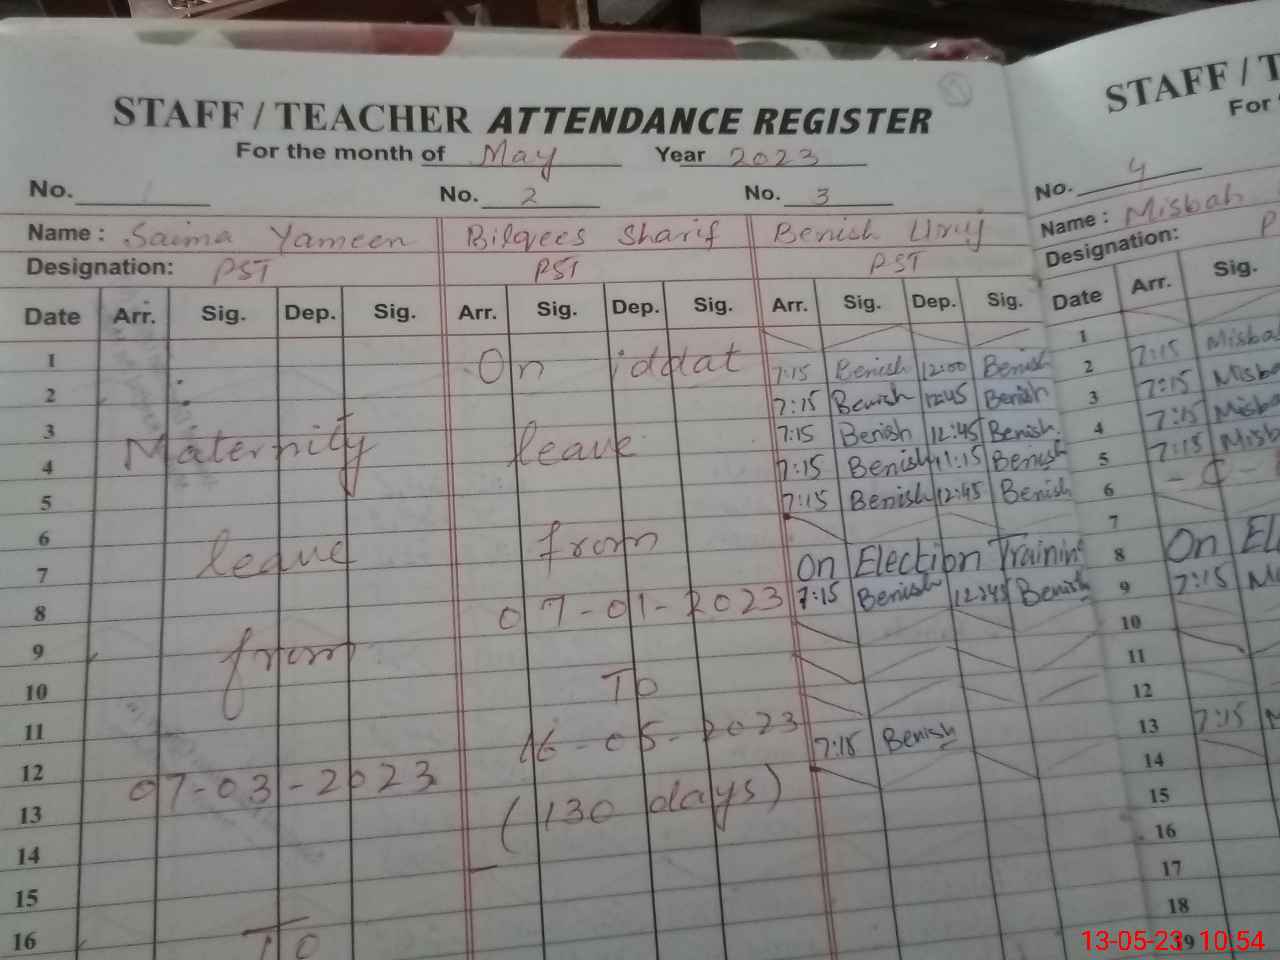 STAFF / TEACHER ATTENDANCE REGISTER
For the month of May Year 2023
No. 1 No. 2 No. 3
Name : Saima Yameen Bilqees Sharif Benish Uruj
Designation: PST PST PST
Date Arr. Sig. Dep. Sig. Arr. Sig. Dep. Sig. Arr. Sig. Dep. Sig.
1 On iddat
7:15 Benish 12:00 Benish
2 7:15 Benish 12:45 Benish
3 Maternity leave 7:15 Benish 12:45 Benish
4 7:15 Benish 11:15 Benish
5 7:15 Benish 12:45 Benish
6 leave from
7 On Election Training
8 07-01-2023 7:15 Benish 12:45 Benish
9 from
10 To
11 16-05-2023 7:15 Benish
12 07-03-2023
13 (130 days)
14
15
16 To
STAFF / T
For
No. 4
Name : Misbah
Designation: P
Date Arr. Sig.
1
2 7:15 Misba
3 7:15 Misb
4 7:15 Misb
5 7:15 Misb
6 - C -
7
8 On El
9 7:15 M
10
11
12
13 7:15 M
14
15
16
17
18
19
13-05-23 10:54